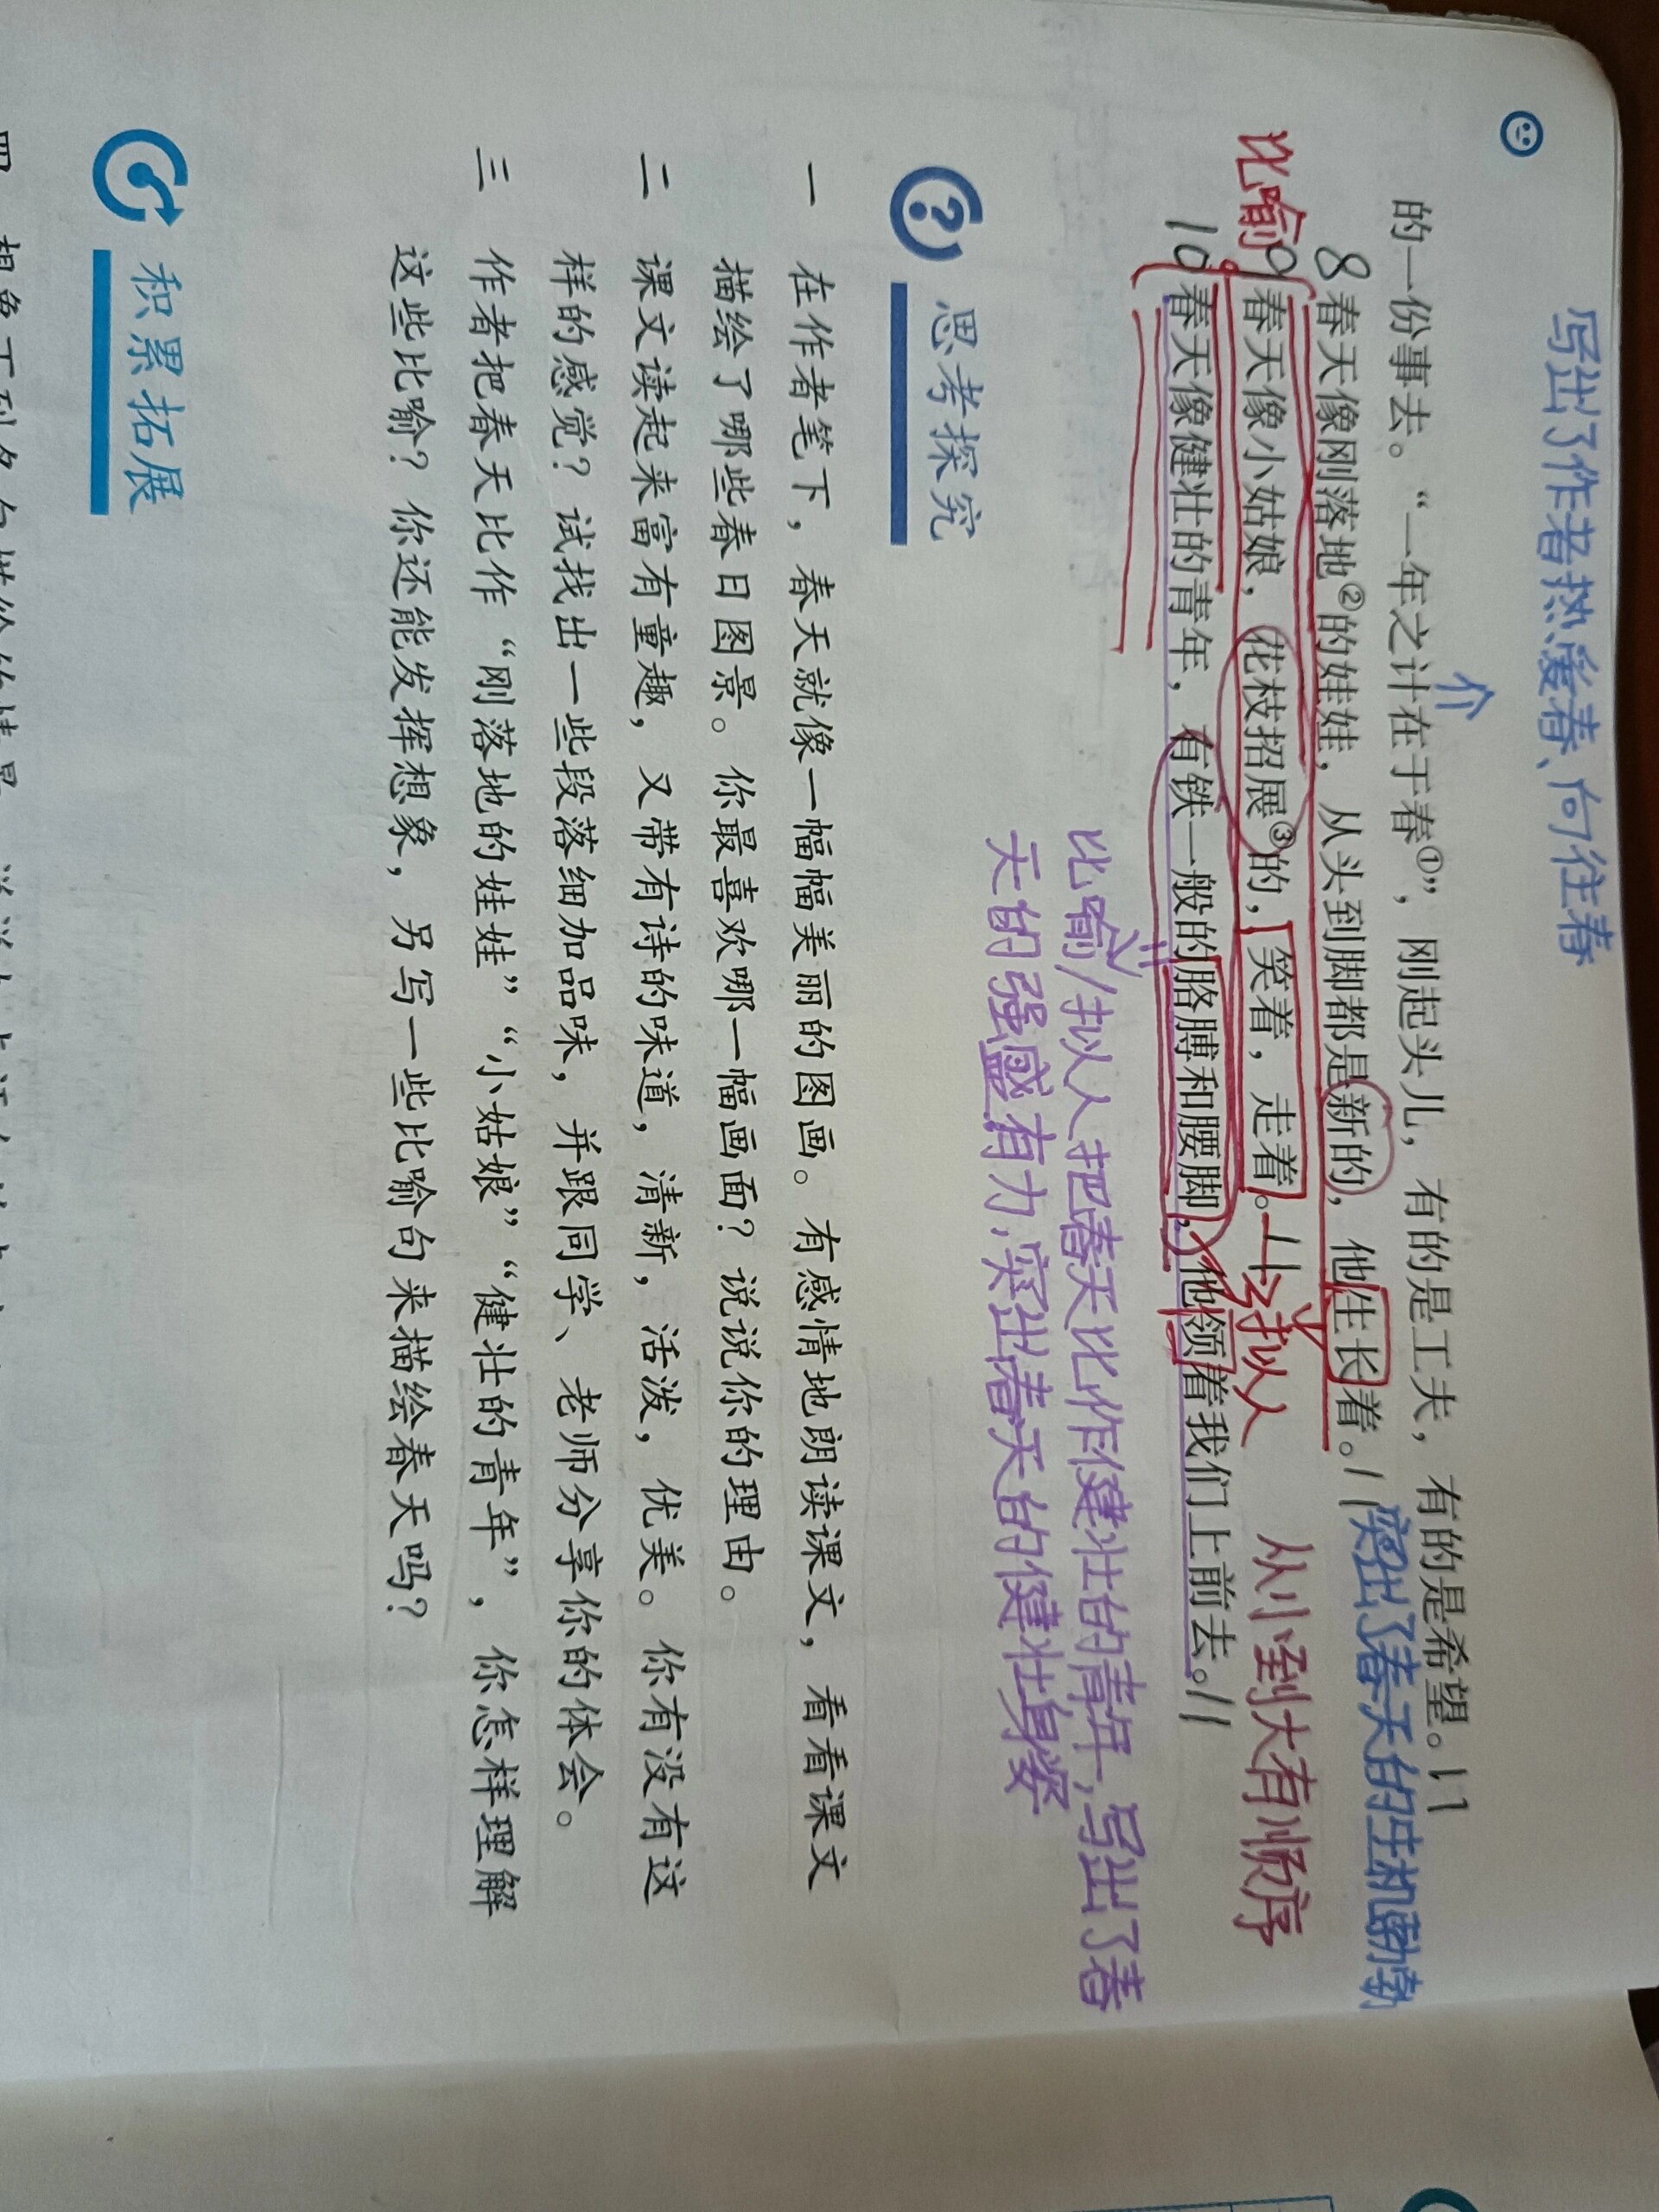 写出了作者热爱春、向往春
的一份事去。“一年之计在于春①”，刚起头儿，有的是工夫，有的是希望。11
个
突出了春天的生机勃勃
8春天像刚落地②的娃娃，从头到脚都是新的，他生长着。//
比喻
9春天像小姑娘，花枝招展③的，笑着，走着。
拟人
从小到大有顺序
10春天像健壮的青年，有铁一般的胳膊和腰脚，他领着我们上前去。//
比喻/拟人 把春天比作健壮的青年，写出了春
天的强盛有力，突出春天的健壮身姿
思考探究
一 在作者笔下，春天就像一幅幅美丽的图画。有感情地朗读课文，看看课文
描绘了哪些春日图景。你最喜欢哪一幅画面？说说你的理由。
二 课文读起来富有童趣，又带有诗的味道，清新，活泼，优美。你有没有这
样的感觉？试找出一些段落细加品味，并跟同学、老师分享你的体会。
三 作者把春天比作“刚落地的娃娃”“小姑娘”“健壮的青年”，你怎样理解
这些比喻？你还能发挥想象，另写一些比喻句来描绘春天吗？
积累拓展